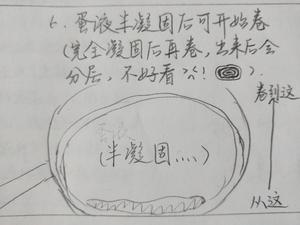 6、蛋液半凝固后可开始卷
(完全凝固后再卷,出来后会
分层,不好看>^<! ).
卷到这
蛋液
(半凝固....)
从这